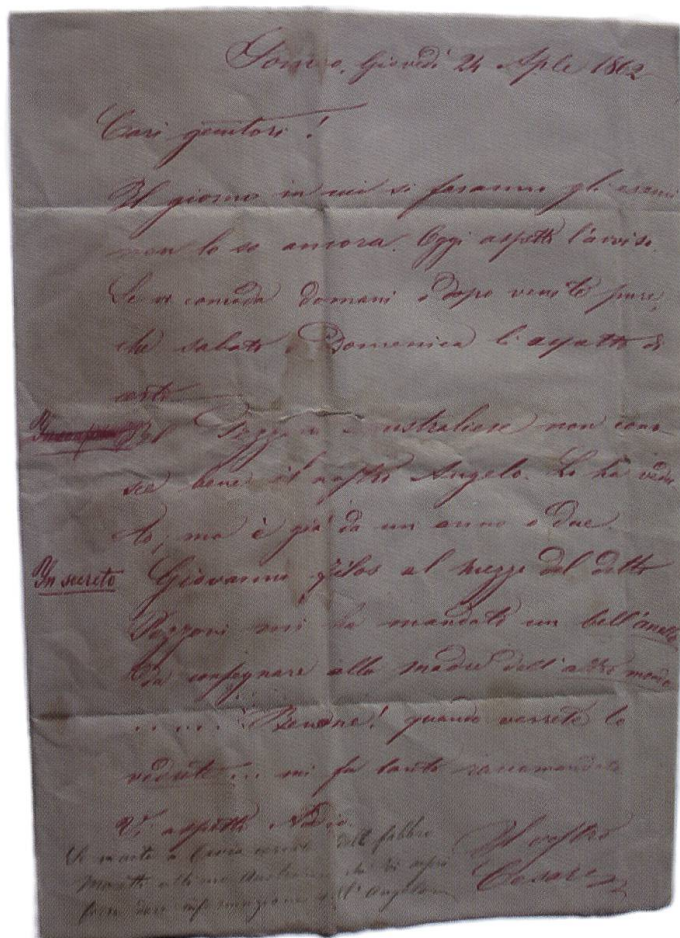 Giovedì 24 Aple 1862
Cari genitori!
Il giorno in cui si faranno gli esami
non lo so ancora. Oggi aspetto l'avviso.
Se vi comoda domani o dopo venite pure,
che sabato e Domenica li aspetto di
certo
Il Pozzoni australiese non cono
sce bene il nostro Angelo. Lo ha vedu
to, ma è già da un anno o due.
In secreto Giovanni filos al mezzo del detto
Pozzoni mi ha mandato un bell'anello
da consegnare alla madre dell' mondo
...... Benone! quando verrete lo
vedrete ... mi fu tanto raccomandato
Vi aspetto Addio.
Il vostro
Cesare
fabbro
che vi saprà
forse dare informazione dell'Angelo